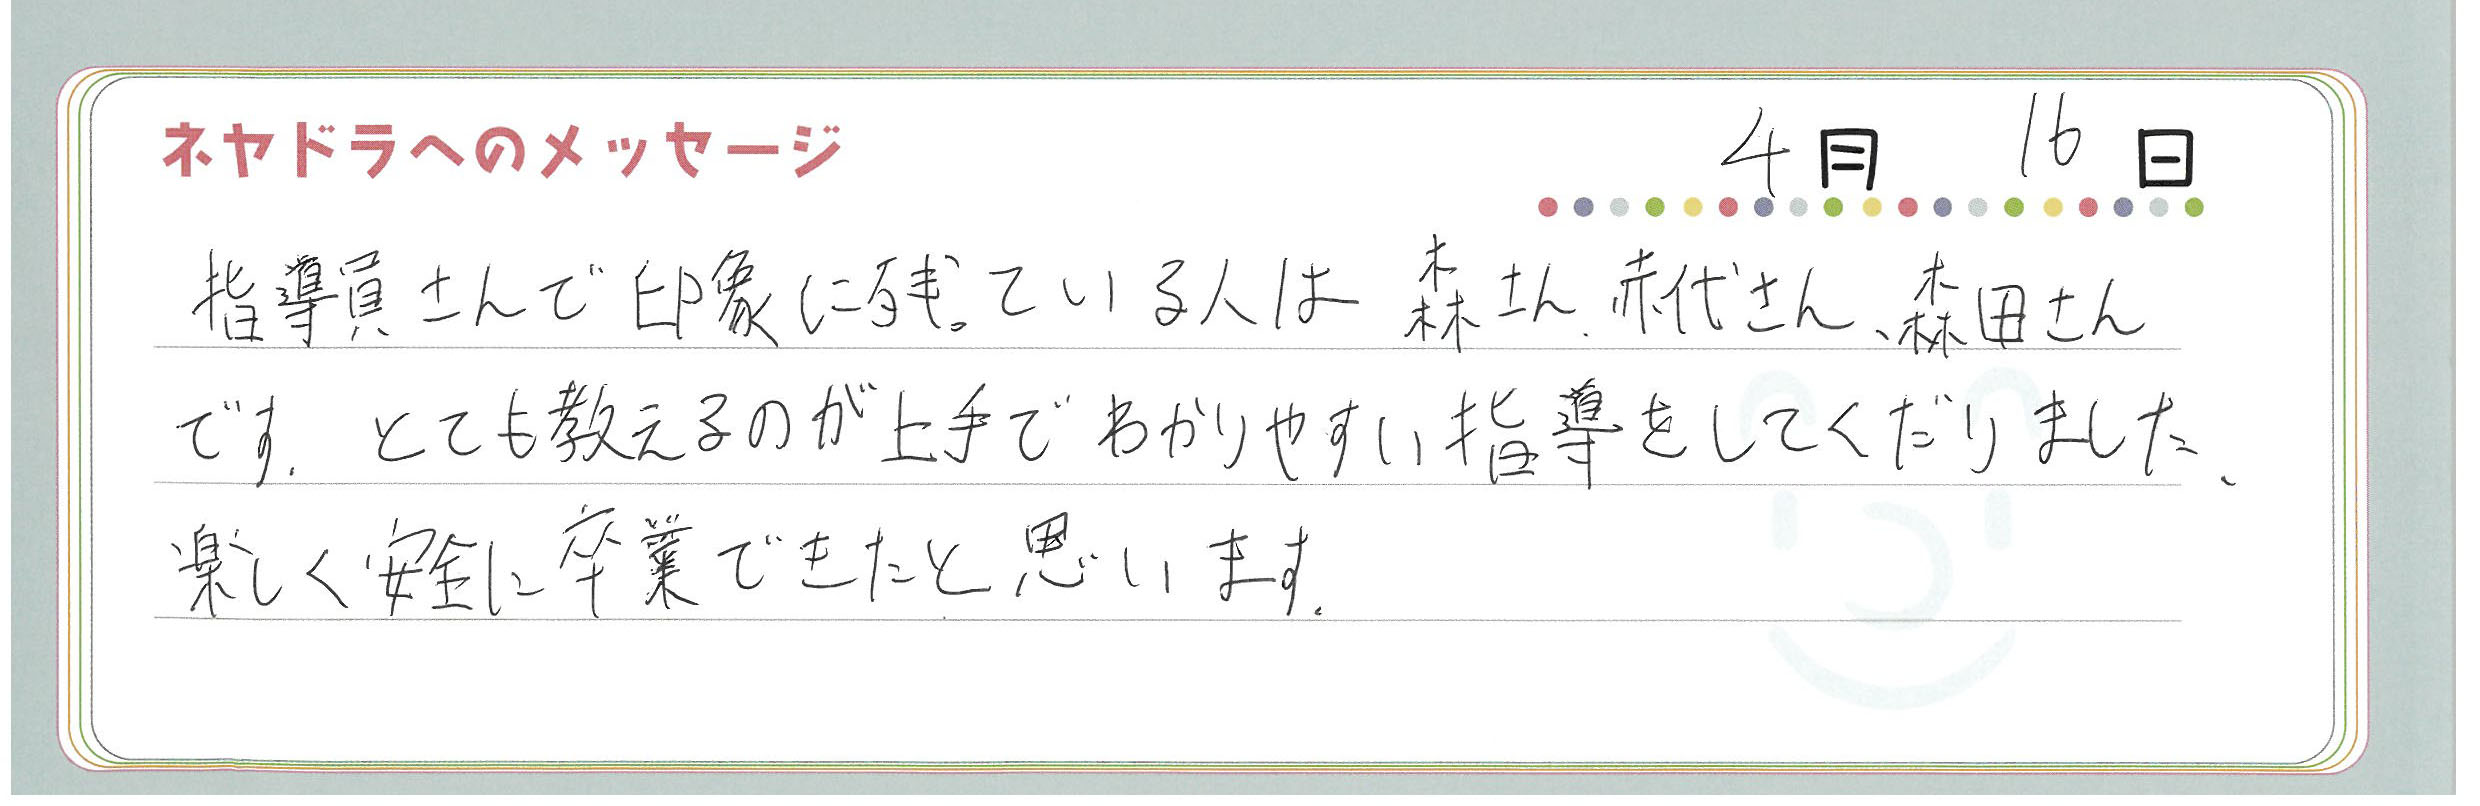 ネヤドラへのメッセージ
4月 16日
指導員さんで印象に残っている人は 森さん、赤代さん、森田さん
です。とても教えるのが上手でわかりやすい指導をしてくだりました、
楽しく安全に卒業できたと思います。